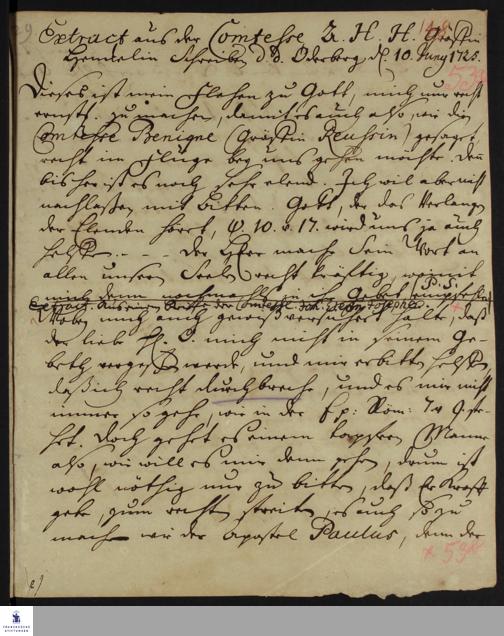 Extract aus der Comtesse Z. H. H. Gräffin
Henckelin Schreiben d. d. Oderberg d. 10. Juny 1725.
Dieses ist mein Flehen zu Gott, mich nur recht
ernstl. zu machen, damit es auch also, wie die
Comtesse Benigne (Gräffin Reussin) gesaget
recht im Fluge bey uns gehen möchte. Den
bisher ist es noch sehr elend. Ich wil aber nicht
nachlaßen mit bitten. Gott, der das Verlangen
der Elenden höret, ψ 10. v. 17. wird uns ja auch
helffen - - - der HErr mache Sein Wort an
allen unsern Seelen recht kräftig, womit
mich denn nochmahls in Gebet empfehle P. S.
habe mich auch gewiß versichert halte, daß
der liebe H. P. mich nicht in seinem Ge-
beth vergeßen werde, und mir erbitten helffen,
daß ich recht durchbreche, und es mir nicht
immer so gehe, wie in der Ep: Röm: 7 v 9. ste-
het. Doch gehet es einem tapfern Manne
also, wie will es mir denn gehen, drum ist
wohl nöthig nur zu bitten, daß Er Krafft
gebe, zum rechten streiten, es auch so zu
machen wie der Apostel Paulus, denn der